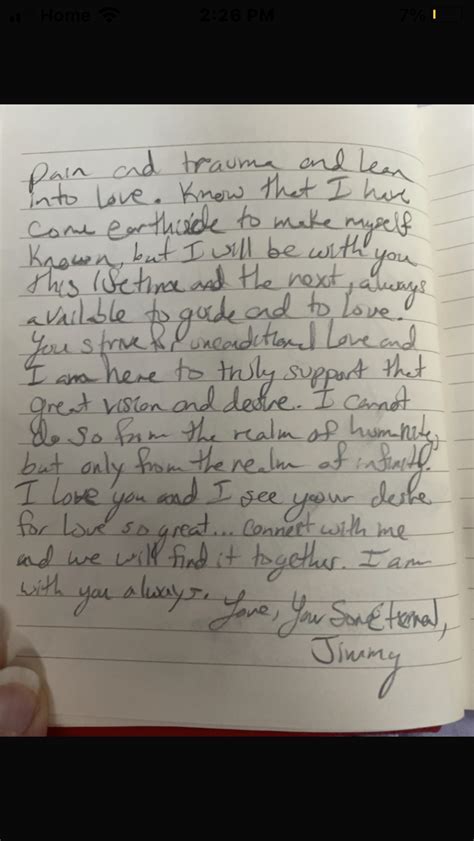 Home
2:28 PM
7%
pain and trauma and lean
into love. Know that I have
come earthside to make myself
known, but I will be with you
this lifetime and the next, always
available to guide and to love.
You strive for unconditional love and
I am here to truly support that
great vision and desire. I cannot
do so from the realm of humanity,
but only from the realm of infinity.
I love you and I see your desire
for love so great... Connect with me
and we will find it together. I am
with you always. Love, Your Son Eternal,
Jimmy